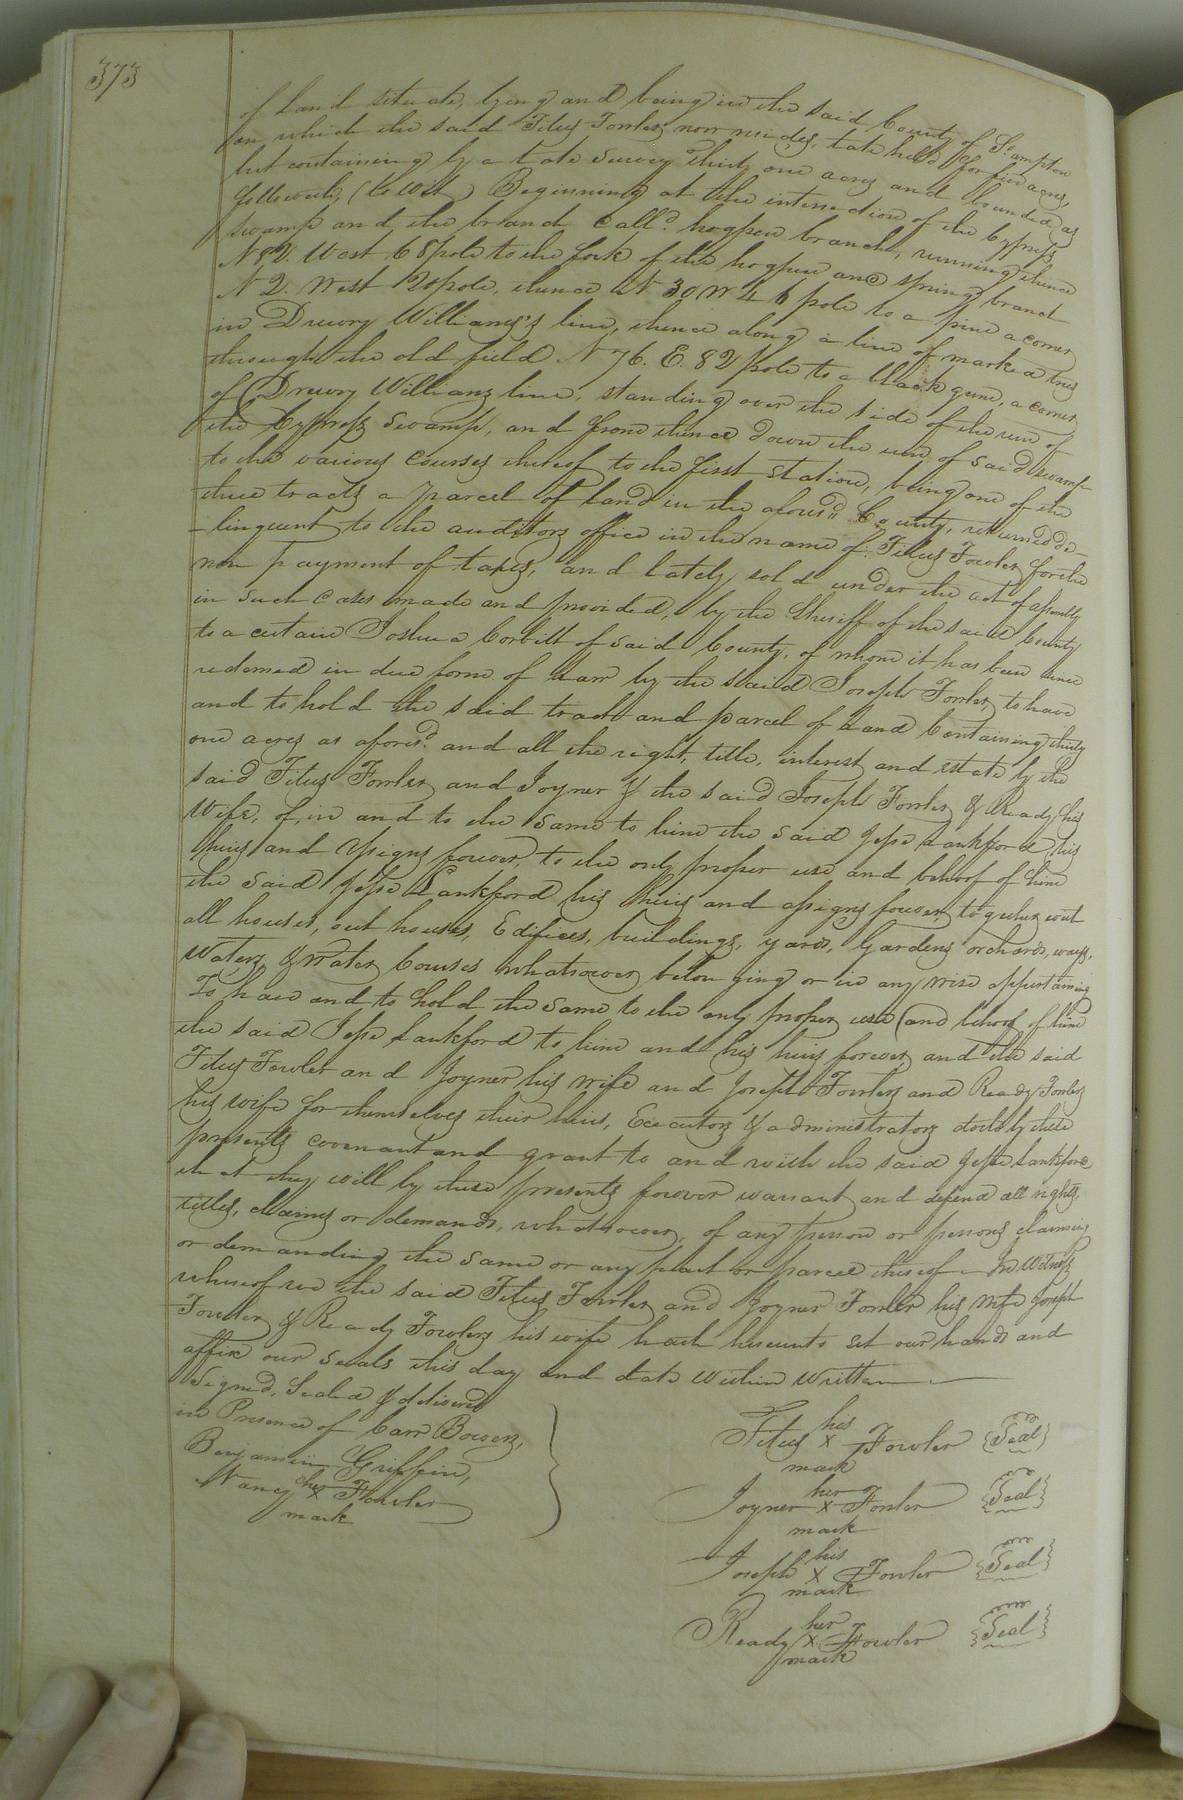 373
of land situate, lying and being in the said County of So.ampton
on which the said Titus Fowler now resides, late held for five acres,
but containing by a late survey thirty one acres and bounded as
followeth, (to wit) Beginning at the intersection of the Cypress
swamp and the branch Calld. hogpen branch, running thence
N 82. West 68 pole to the fork of the hogpen and spring branch
N 2. West 20 pole, thence N 30 W 46 pole to a pine a corner
in Drewry Williams's line, thence along a line of marked trees
through the old field N 76. E. 82 pole to a black gum, a corner
of Drewry Williams line, standing over the side of the run of
the Cypress Swamp, and from thence down the run of said swamp
to the various Courses thereof to the first station, being one of the
three tracts a parcel of land in the aforesd. County, returned de-
-linquent to the auditors office in the name of Titus Fowler for the
non payment of taxes, and lately sold under the act of assembly
in such cases made and provided, by the Sheriff of the said County
to a certain Joshua Corbitt of said County, of whom it has been since
redemed in due form of Law by the said Joseph Fowler, to have
and to hold the said tract and parcel of Land Containing thirty
one acres as aforesd. and all the right, title, interest and estate by the
said Titus Fowler and Joyner & the said Joseph Fowler & Ready his
Wife, of, in and to the same to him the said Jesse Lankford his
heirs and assigns forever, to the only proper use and behoof of him
the said Jesse Lankford his heirs and assigns forever together with
all houses, out houses, Edifices, buildings, yards, Gardens orchards, ways,
Waters & Water Courses whatsoever belonging or in any wise appertaining
To have and to hold the same to the only proper use and behoof of him
the said Jesse Lankford to him and his heirs forever and the said
Titus Fowler and Joyner his wife and Joseph Fowler and Ready Fowler
his wife for themselves their heirs, Executors & administrators doth by these
presents covenant and grant to and with the said Jesse Lankford
that they will by these presents forever warrant and defend all rights,
titles, claims or demands, whatsoever, of any person or persons claiming
or demanding the same or any part or parcel thereof In Witness
whereof we the said Titus Fowler and Joyner Fowler his wife Joseph
Fowler & Ready Fowler his wife hath hereunto set our hands and
affix our seals this day and date within written
Signed, Sealed & delivered
in Presence of Carr Bowers,
Benjamin Griffin,
Nancy her x mark Fowler
Titus his x mark Fowler Seal
Joyner her x mark Fowler Seal
Joseph his x mark Fowler Seal
Ready her x mark Fowler Seal